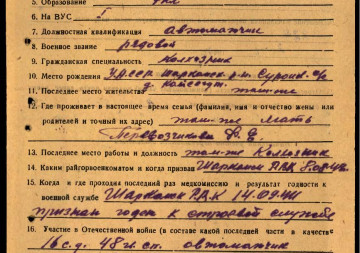 5. Образование
6. На ВУС 5
7. Должностная квалификация автоматчик
8. Военное звание рядовой
9. Гражданская специальность Колхозник
10. Место рождения УАССР Шарканск. р-н,
11. Последнее место жительства там-же
12. Где проживает в настоящее время семья (фамилия, имя и отчество жены или
родителей и точный их адрес) там-же мать
Перевозчикова
13. Последнее место работы и должность там-же Колхозник
14. Каким райгорвоенкоматом и когда призван Шарканск РВК
15. Когда и где проходил последний раз медкомиссию и результат годности к
военной службе Шарканск РВК
признан годен к строевой службе
16. Участие в Отечественной войне (в составе какой последней части в качестве
16 с.д. 48 гв. сп. автоматчик